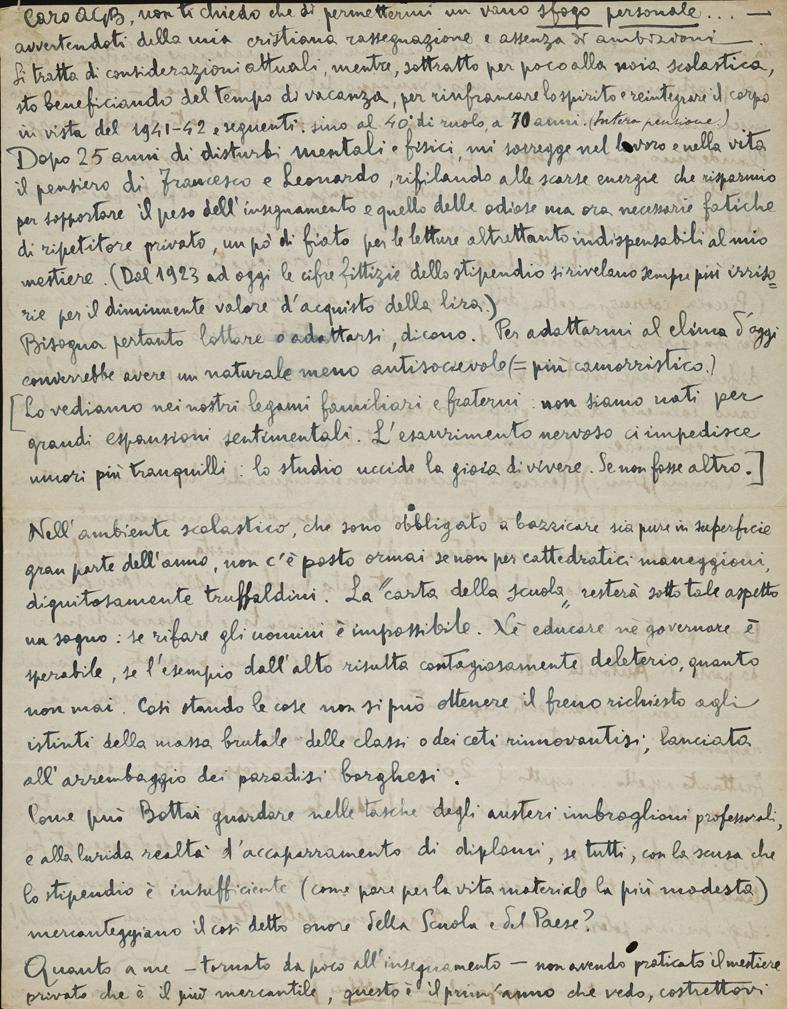 Caro AGB, non ti chiedo che di permettermi un vano sfogo personale... —
avvertendoti della mia cristiana rassegnazione e assenza di ambizioni
Si tratta di considerazioni attuali, mentre, sottratto per poco alla noia scolastica,
sto beneficiando del tempo di vacanza, per rinfrancare lo spirito e reintegrare il corpo
in vista del 1941-42 e seguenti. sino al 40° di ruolo, a 70 anni. (Intera pensione.)
Dopo 25 anni di disturbi mentali e fisici, mi sorregge nel lavoro e nella vita
il pensiero di Francesco e Leonardo, rifilando alle scarse energie che risparmio
per sopportare il peso dell'insegnamento e quello delle odiose ma ora necessarie fatiche
di ripetitore privato, un pò di fiato per le letture altrettanto indispensabili al mio
mestiere. (Dal 1923 ad oggi le cifre fittizie dello stipendio si rivelano sempre più irriso=
rie per il diminuente valore d'acquisto della lira.)
Bisogna pertanto lottare o adattarsi, dicono. Per adattarmi al clima d'oggi
converrebbe avere un naturale meno antisocievole (= più camorristico.)
[Lo vediamo nei nostri legami familiari e fraterni. non siamo nati per
grandi espansioni sentimentali. L'esaurimento nervoso ci impedisce
umori più tranquilli: lo studio uccide la gioia di vivere. Se non fosse altro.]
Nell'ambiente scolastico, che sono obbligato a bazzicare sia pure in superficie
gran parte dell'anno, non c'è posto ormai se non per cattedratici maneggioni,
dignitosamente truffaldini. La "carta della scuola" resterà sotto tale aspetto
un sogno: se rifare gli uomini è impossibile. Nè educare nè governare è
sperabile, se l'esempio dall'alto risulta contagiosamente deleterio, quanto
non mai. Così stando le cose non si può ottenere il freno richiesto agli
istinti della massa brutale delle classi o dei ceti rinnovantisi, lanciata
all'arrembaggio dei paradisi borghesi.
Come può Bottai guardare nelle tasche degli austeri imbroglioni professorali,
e alla lurida realtà d'accaparramento di diplomi, se tutti, con la scusa che
lo stipendio è insufficiente (come pare per la vita materiale la più modesta)
mercanteggiano il così detto onore della Scuola e del Paese?
Quanto a me — tornato da poco all'insegnamento — non avendo praticato il mestiere
privato che è il più mercantile, questo è il prim'anno che vedo, costrettovi